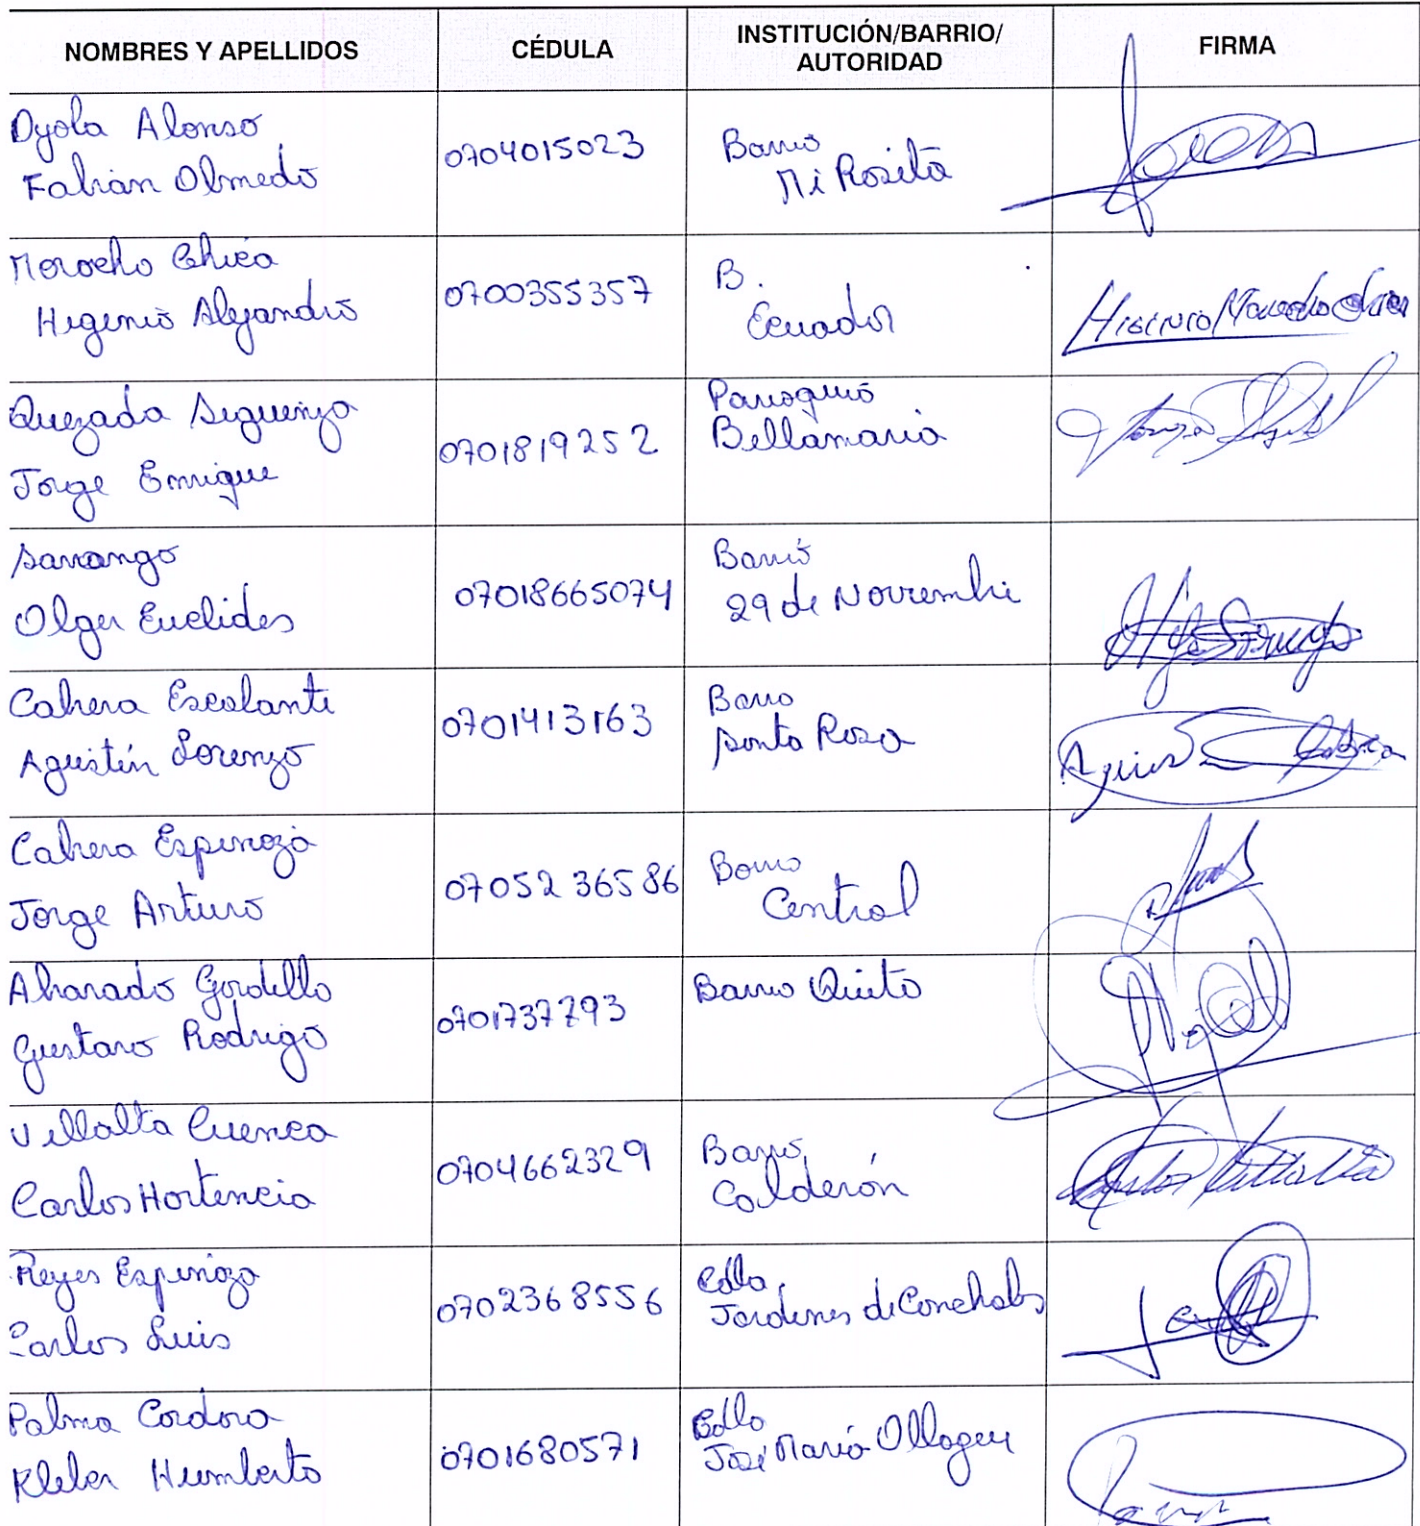 NOMBRES Y APELLIDOS
CÉDULA
INSTITUCIÓN/BARRIO/
AUTORIDAD
FIRMA
Oyola Alonso
Fabian Olmedo
0704015023
Barrio
Mi Rosita
Morocho Chica
Higenio Alejandro
0700355357
B.
Ecuador
Higinio Morocho Chica
Quezada Siguenza
Jorge Enrique
0701819252
Parroquia
Bellamaria
Jorge
Sarango
Olger Euclides
07018665074
Barrio
29 de Noviembre
Cabrera Escalante
Agustín Lorenzo
0701413163
Barrio
Santa Rosa
Cabrera Espinoza
Jorge Arturo
0705236586
Barrio
Central
Alvarado Gordillo
Gustavo Rodrigo
0701737793
Barrio Quito
Villalta Cuenca
Carlos Hortencia
0704662329
Barrio
Calderón
Carlos Villalta
Reyes Espinoza
Carlos Luis
0702368556
Cdla
Jardines de Conchales
Palma Cordova
Kleber Humberto
0701680571
Cdla
José María Ollague